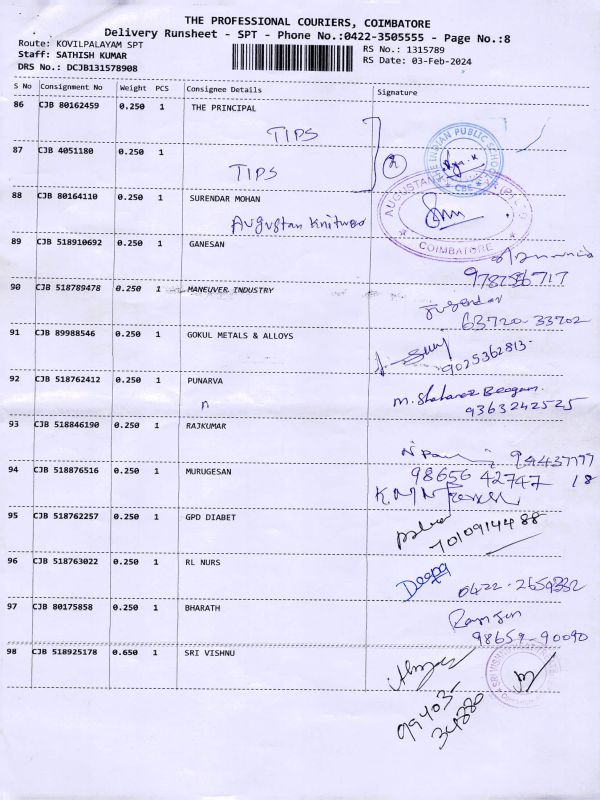 THE PROFESSIONAL COURIERS, COIMBATORE
Delivery Runsheet - SPT - Phone No.:0422-3505555 - Page No.:8
Route: KOVILPALAYAM SPT
RS No.: 1315789
Staff: SATHISH KUMAR
RS Date: 03-Feb-2024
DRS No.: DCJB131578908
S No Consignment No Weight PCS Consignee Details Signature
86 CJB 80162459 0.250 1 THE PRINCIPAL
TIPS
87 CJB 4051180 0.250 1
TIPS
2
THE INDIAN PUBLIC SCHOOL
CBE
88 CJB 80164110 0.250 1 SURENDAR MOHAN
Augustan Knitwear
COIMBATORE
89 CJB 518910692 0.250 1 GANESAN
90 CJB 518789478 0.250 1 MANEUVER INDUSTRY
63720-33702
91 CJB 89988546 0.250 1 GOKUL METALS & ALLOYS
9025362813
92 CJB 518762412 0.250 1 PUNARVA
n
9363242525
93 CJB 518846190 0.250 1 RAJKUMAR
94 CJB 518876516 0.250 1 MURUGESAN
98656 42747
95 CJB 518762257 0.250 1 GPD DIABET
7010914488
96 CJB 518763022 0.250 1 RL NURS
Deepa
97 CJB 80175858 0.250 1 BHARATH
98659-90090
98 CJB 518925178 0.650 1 SRI VISHNU
99403-
34880